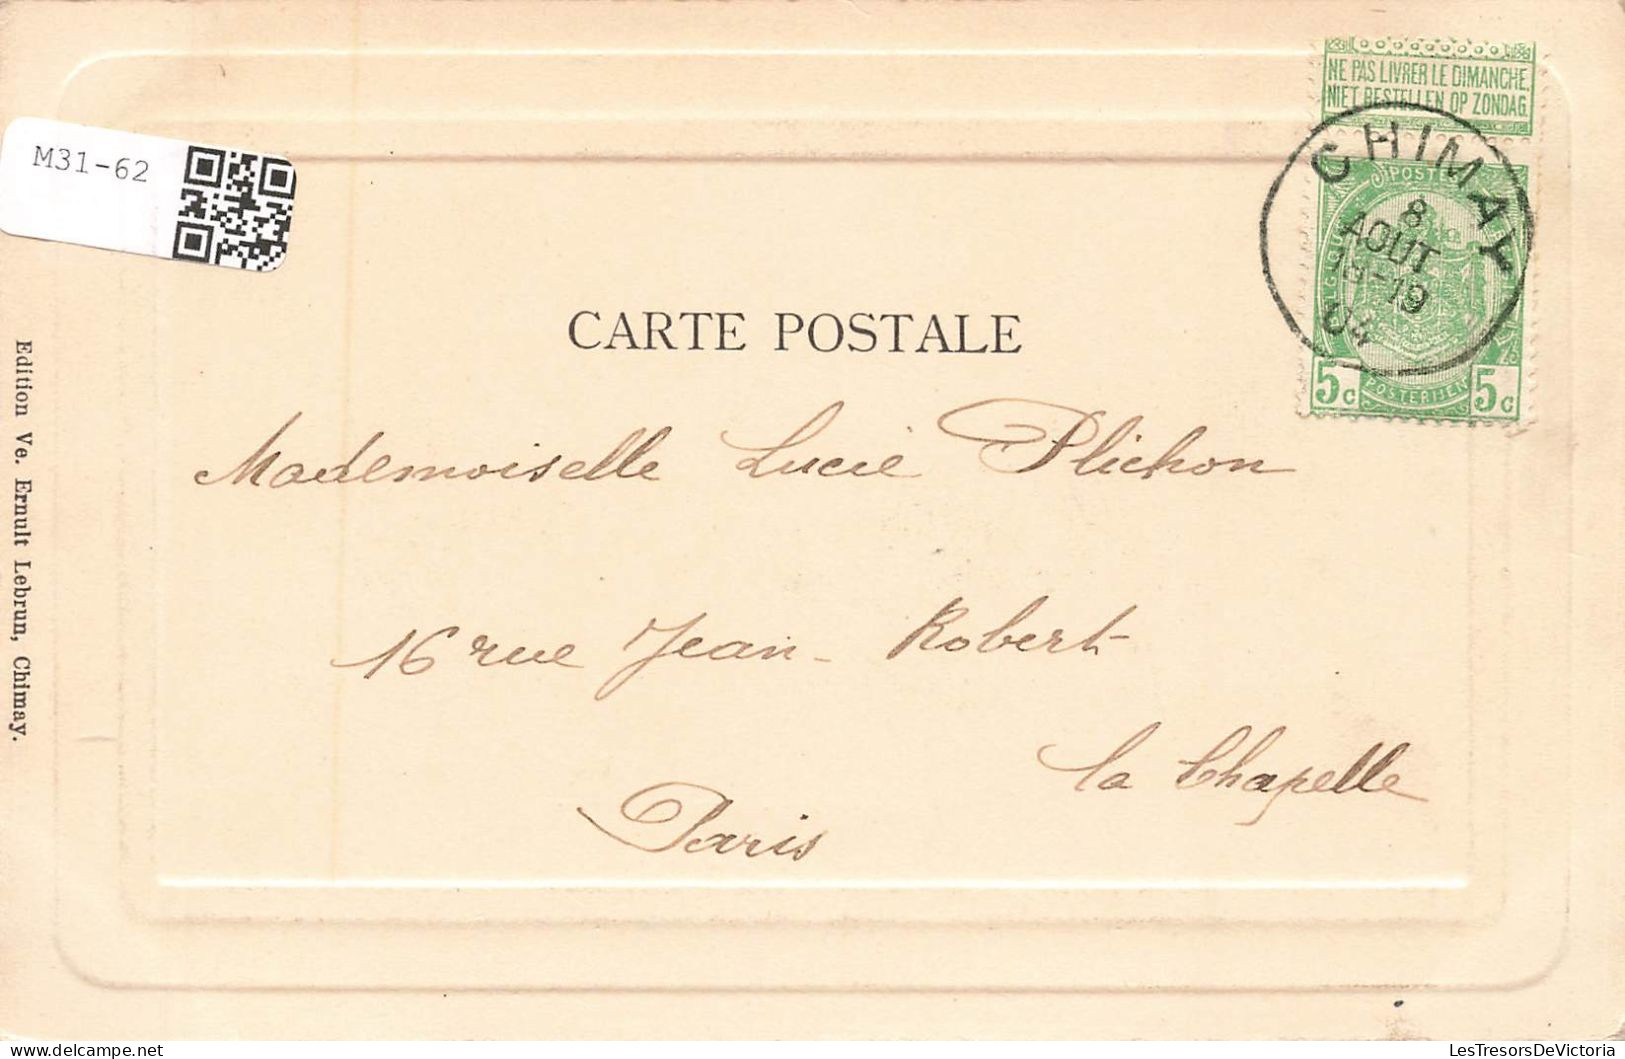 M31-62
NE PAS LIVRER LE DIMANCHE.
NIET BESTELLEN OP ZONDAG
CHIMAY
8
AOUT
18-19
04
POSTES
POSTERIJEN
5c 5c
CARTE POSTALE
Mademoiselle Lucie Plichon
16 rue Jean-Robert
la Chapelle
Paris
Edition Ve. Ernult Lebrun, Chimay.
LesTresorsDeVictoria